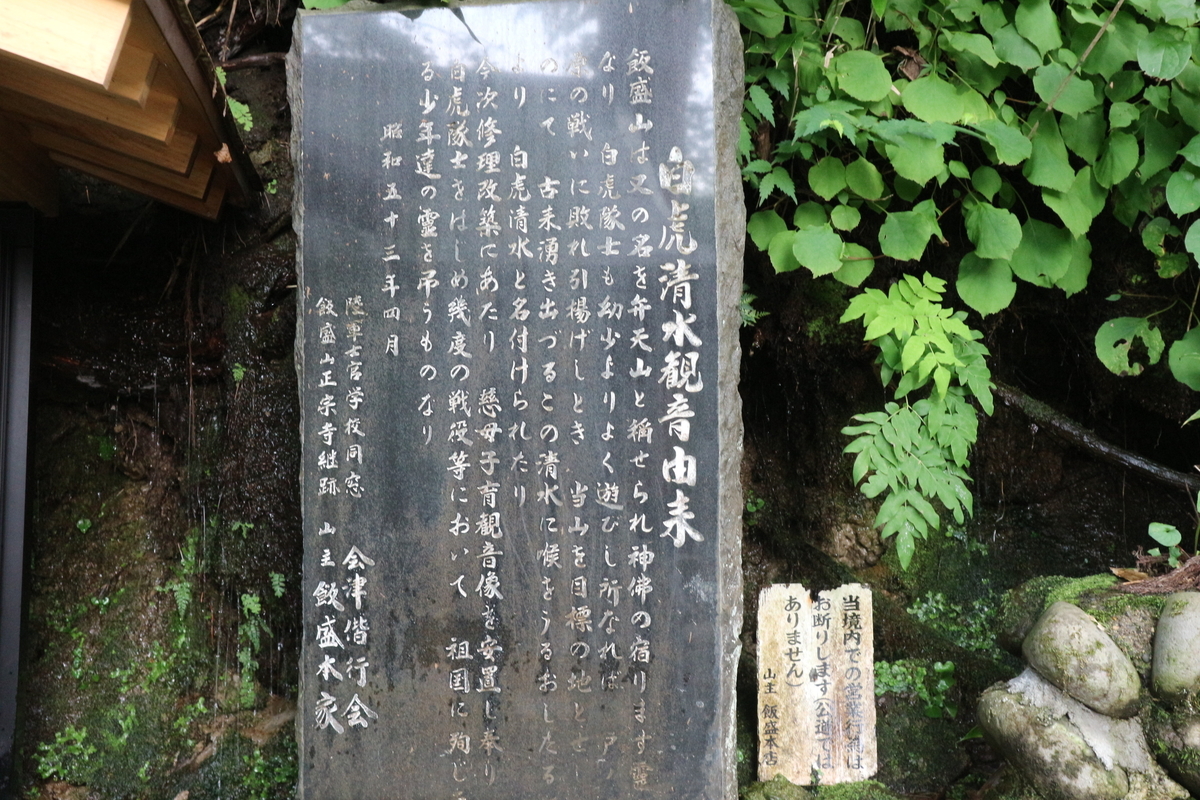 白虎清水観音由来
飯盛山は又の名を弁天山と稱せられ神佛の宿ります霊
なり 白虎隊士も幼少よりよく遊びし所なれば 戸ノ
の戦いに敗れ引揚げしとき 当山を目標の地とせし
のにて 古来湧き出づるこの清水に喉をうるおしたる
より 白虎清水と名付けられたり
今次修理改築にあたり 慈母子育観音像を安置し奉り
白虎隊士をはじめ幾度の戦役等において 祖国に殉じ
る少年達の霊を弔うものなり
昭和五十三年四月
陸軍士官学校同窓 会津偕行会
飯盛山正宗寺継跡 山主 飯盛本家
当境内での営業行為は
お断りします(公道では
ありません)
山主 飯盛本店